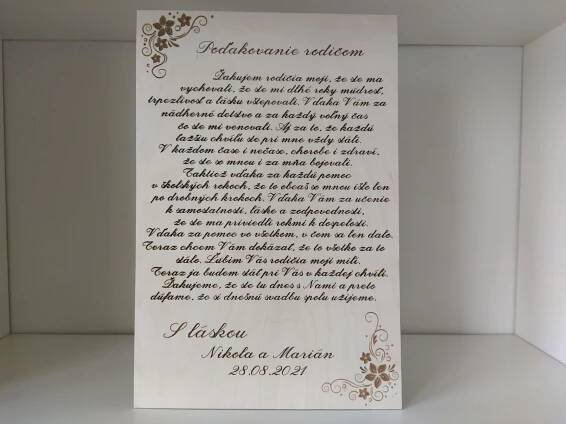 Poďakovanie rodičom
Ďakujem rodičia moji, že ste ma
vychovali, že ste mi dlhé roky múdrosť,
trpezlivosť a lásku vštepovali. Vďaka Vám za
nádherné detstvo a za každý voľný čas
čo ste mi venovali. Aj za to, že každú
ťažšiu chvíľu ste pri mne vždy stáli.
V každom čase i nečase, chorobe i zdraví,
že ste so mnou i za mňa bojovali.
Taktiež vďaka za každú pomoc
v školských rokoch, že to občas so mnou išlo len
po drobných krokoch. Vďaka Vám za učenie
k samostatnosti, láske a zodpovednosti,
že ste ma priviedli rokmi k dospelosti.
Vďaka za pomoc vo všetkom, v čom sa len dalo.
Teraz chcem Vám dokázať, že to všetko za to
stálo. Ľúbim Vás rodičia moji milí.
Teraz ja budem stáť pri Vás v každej chvíli.
Ďakujeme, že ste tu dnes s Nami a preto
dúfame, že si dnešnú svadbu spolu užijeme.
S láskou
Nikola a Marián
28.08.2021